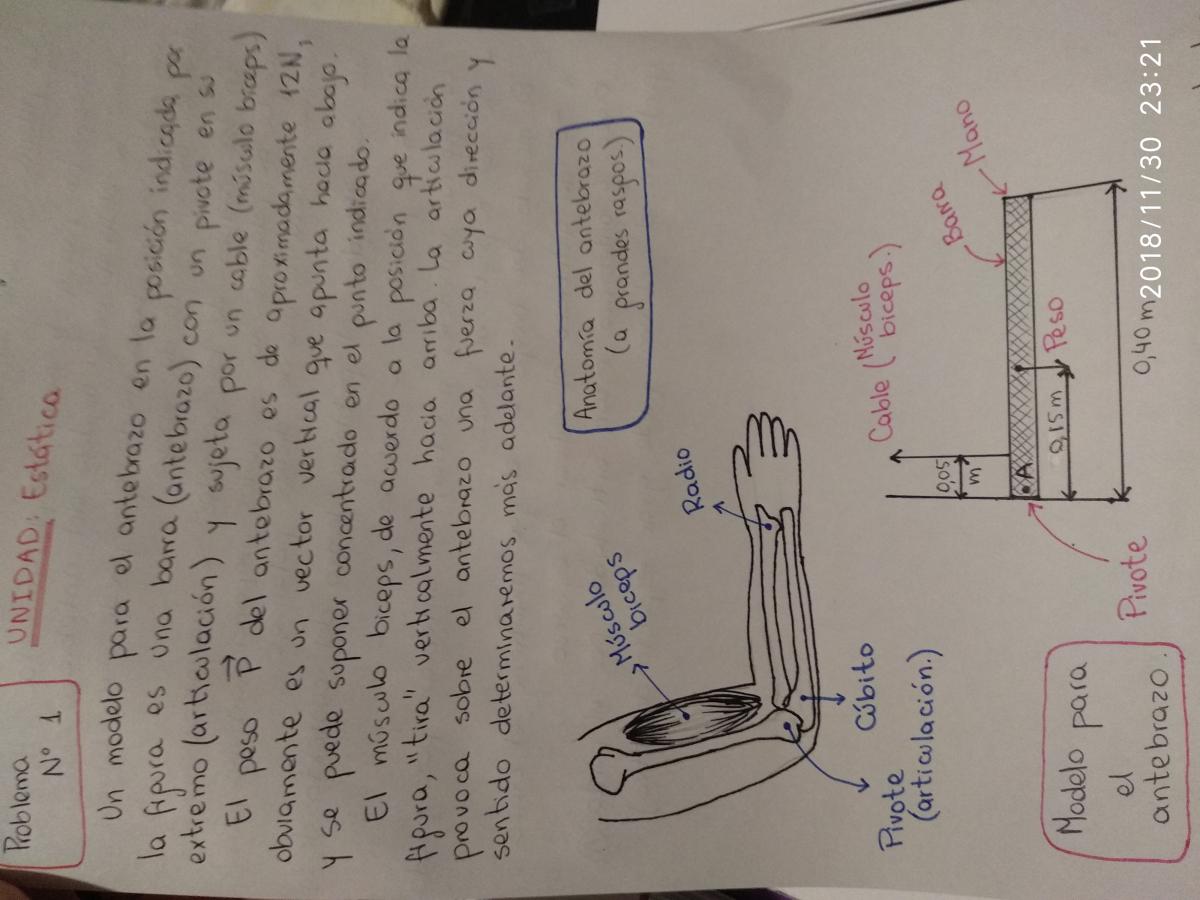 Problema
Nº 1
UNIDAD: Estática
Un modelo para el antebrazo en la posición indicada por
la figura es una barra (antebrazo) con un pivote en su
extremo (articulación) y sujeta por un cable (músulo biceps)
El peso P del antebrazo es de aproximadamente 12N,
obviamente es un vector vertical que apunta hacia abajo.
y se puede suponer concentrado en el punto indicado.
El músculo biceps, de acuerdo a la posición que indica la
figura, "tira" verticalmente hacia arriba. La articulación
provoca sobre el antebrazo una fuerza cuya dirección y
sentido determinaremos más adelante.
Anatomía del antebrazo
(a grandes rasgos.)
Músculo
biceps
Radio
Pivote
(articulación.)
Cúbito
Modelo para
el
antebrazo.
Cable (Músculo
biceps.)
Barra
Mano
0,05
m
A
Peso
0,15m
Pivote
0,40m
2018/11/30 23:21